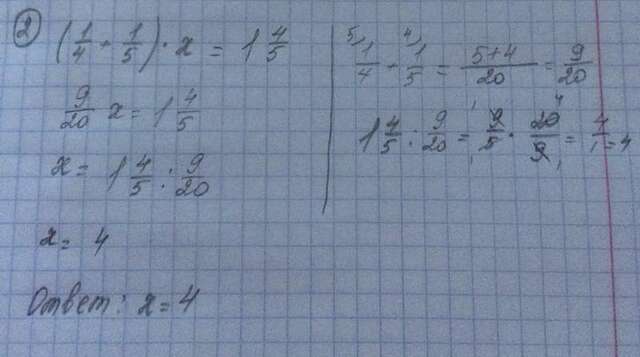 2
(1/4 + 1/5) · x = 1 4/5
9/20 x = 1 4/5
x = 1 4/5 : 9/20
x = 4
Ответ: x = 4
5) 1/4 + 4) 1/5 = 5+4/20 = 9/20
1 4/5 : 9/20 = 9/5 · 20/9 = 4/1 = 4